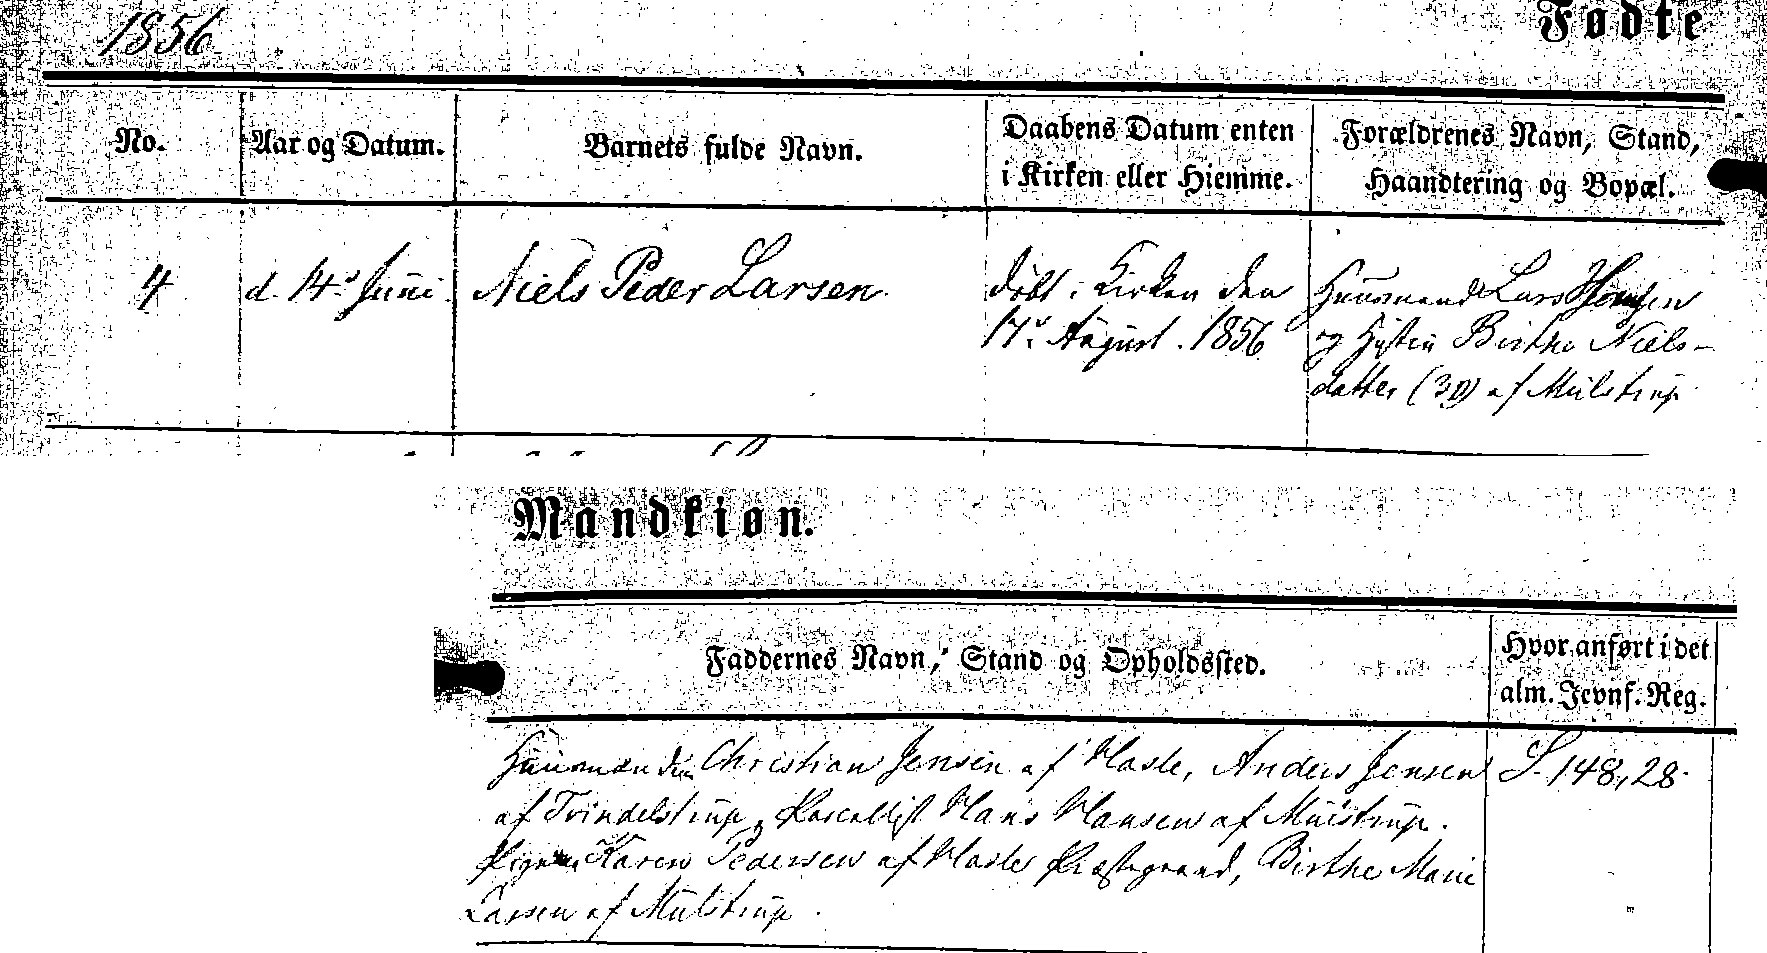 1856
Fødte
No.
Aar og Datum.
Barnets fulde Navn.
Daabens Datum enten
i Kirken eller Hiemme.
Forældrenes Navn, Stand,
Haandtering og Bopæl.
4
d. 14de Juni
Niels Peder Larsen
døbt i Kirken den
17de August. 1856
Huusmand Lars
og Hustru Birthe Niels-
datter (39) af Mulstrup
Mandkiøn.
Faddernes Navn, Stand og Opholdssted.
Hvor anført i det
alm. Jevnf. Reg.
Huusmændene Christian Jensen af Hasle, Anders Jensen
af Trindelstrup, Parcellist Hans Hansen af Mulstrup.
Karen Pedersen af Hasle Præstegaard, Birthe Marie
Larsen af Mulstrup.
S. 148, 28.